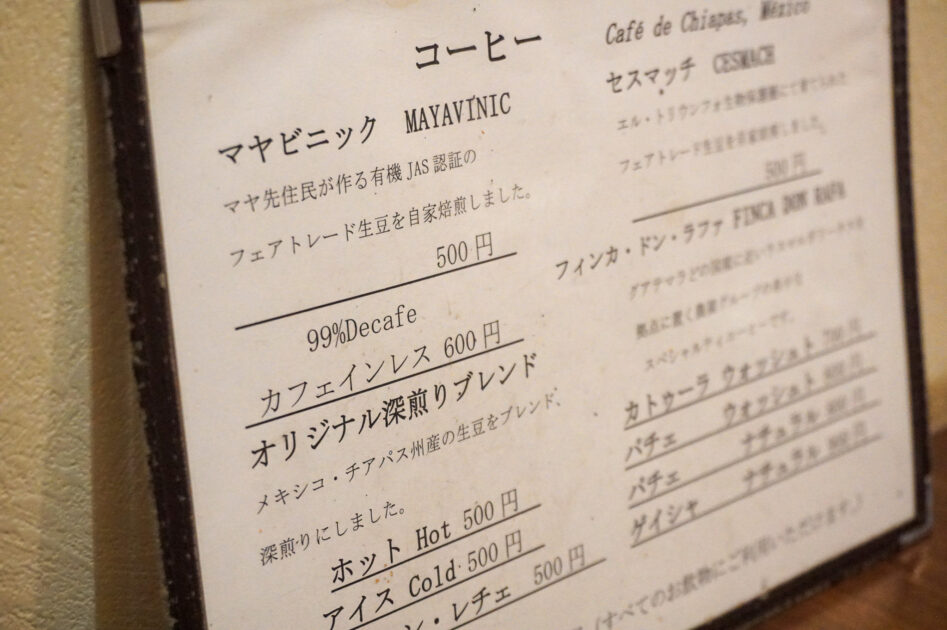 コーヒー
マヤビニック MAYAVINIC
マヤ先住民が作る有機JAS認証の
フェアトレード生豆を自家焙煎しました。
500円
99%Decafe
カフェインレス 600円
オリジナル深煎りブレンド
メキシコ・チアパス州産の生豆をブレンド、
深煎りにしました。
ホット Hot 500円
アイス Cold 500円
ン・レチェ 500円
Café de Chiapas, México
セスマッチ CESMACH
エル・トリウンフォ生物保護圏にて育てられた
フェアトレード生豆を自家焙煎しました。
500円
フィンカ・ドン・ラファ FINCA DON RAFA
グアテマラとの国境に近い
拠点に置く農園グループの
スペシャルティコーヒーです。
カトゥーラ ウォッシュト 700円
パチェ ウォッシュト
パチェ ナチュラル
ゲイシャ ナチュラル
(すべてのお飲物にご利用いただけます。)